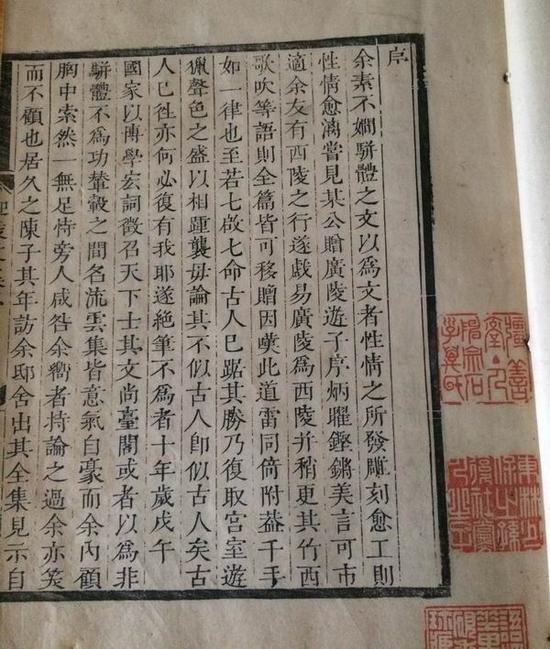 序
余素不嫺駢體之文以爲文者性情之所發雕刻愈工則
性情愈漓嘗見某公贈廣陵遊子序炳曜鏗鏘美言可市
適余友有西陵之行遂戱易廣陵爲西陵并稍更其竹西
歌吹等語則全篇皆可移贈因嘆此道雷同倚附葢千手
如一律也至若七啟七命古人已踞其勝乃復取宮室遊
獵聲色之盛以相踵襲毋論其不似古人卽似古人矣古
人已徃亦何必復有我耶遂絶筆不爲者十年歲戊午
國家以博學宏詞徵召天下士其文尚臺閣或者以爲非
駢體不爲功輦轂之間名流雲集皆意氣自豪而余內顧
胸中索然一無足恃旁人咸咎余衢者持論之過余亦笑
而不顧也居久之陳子其年訪余邸舍出其全集見示自